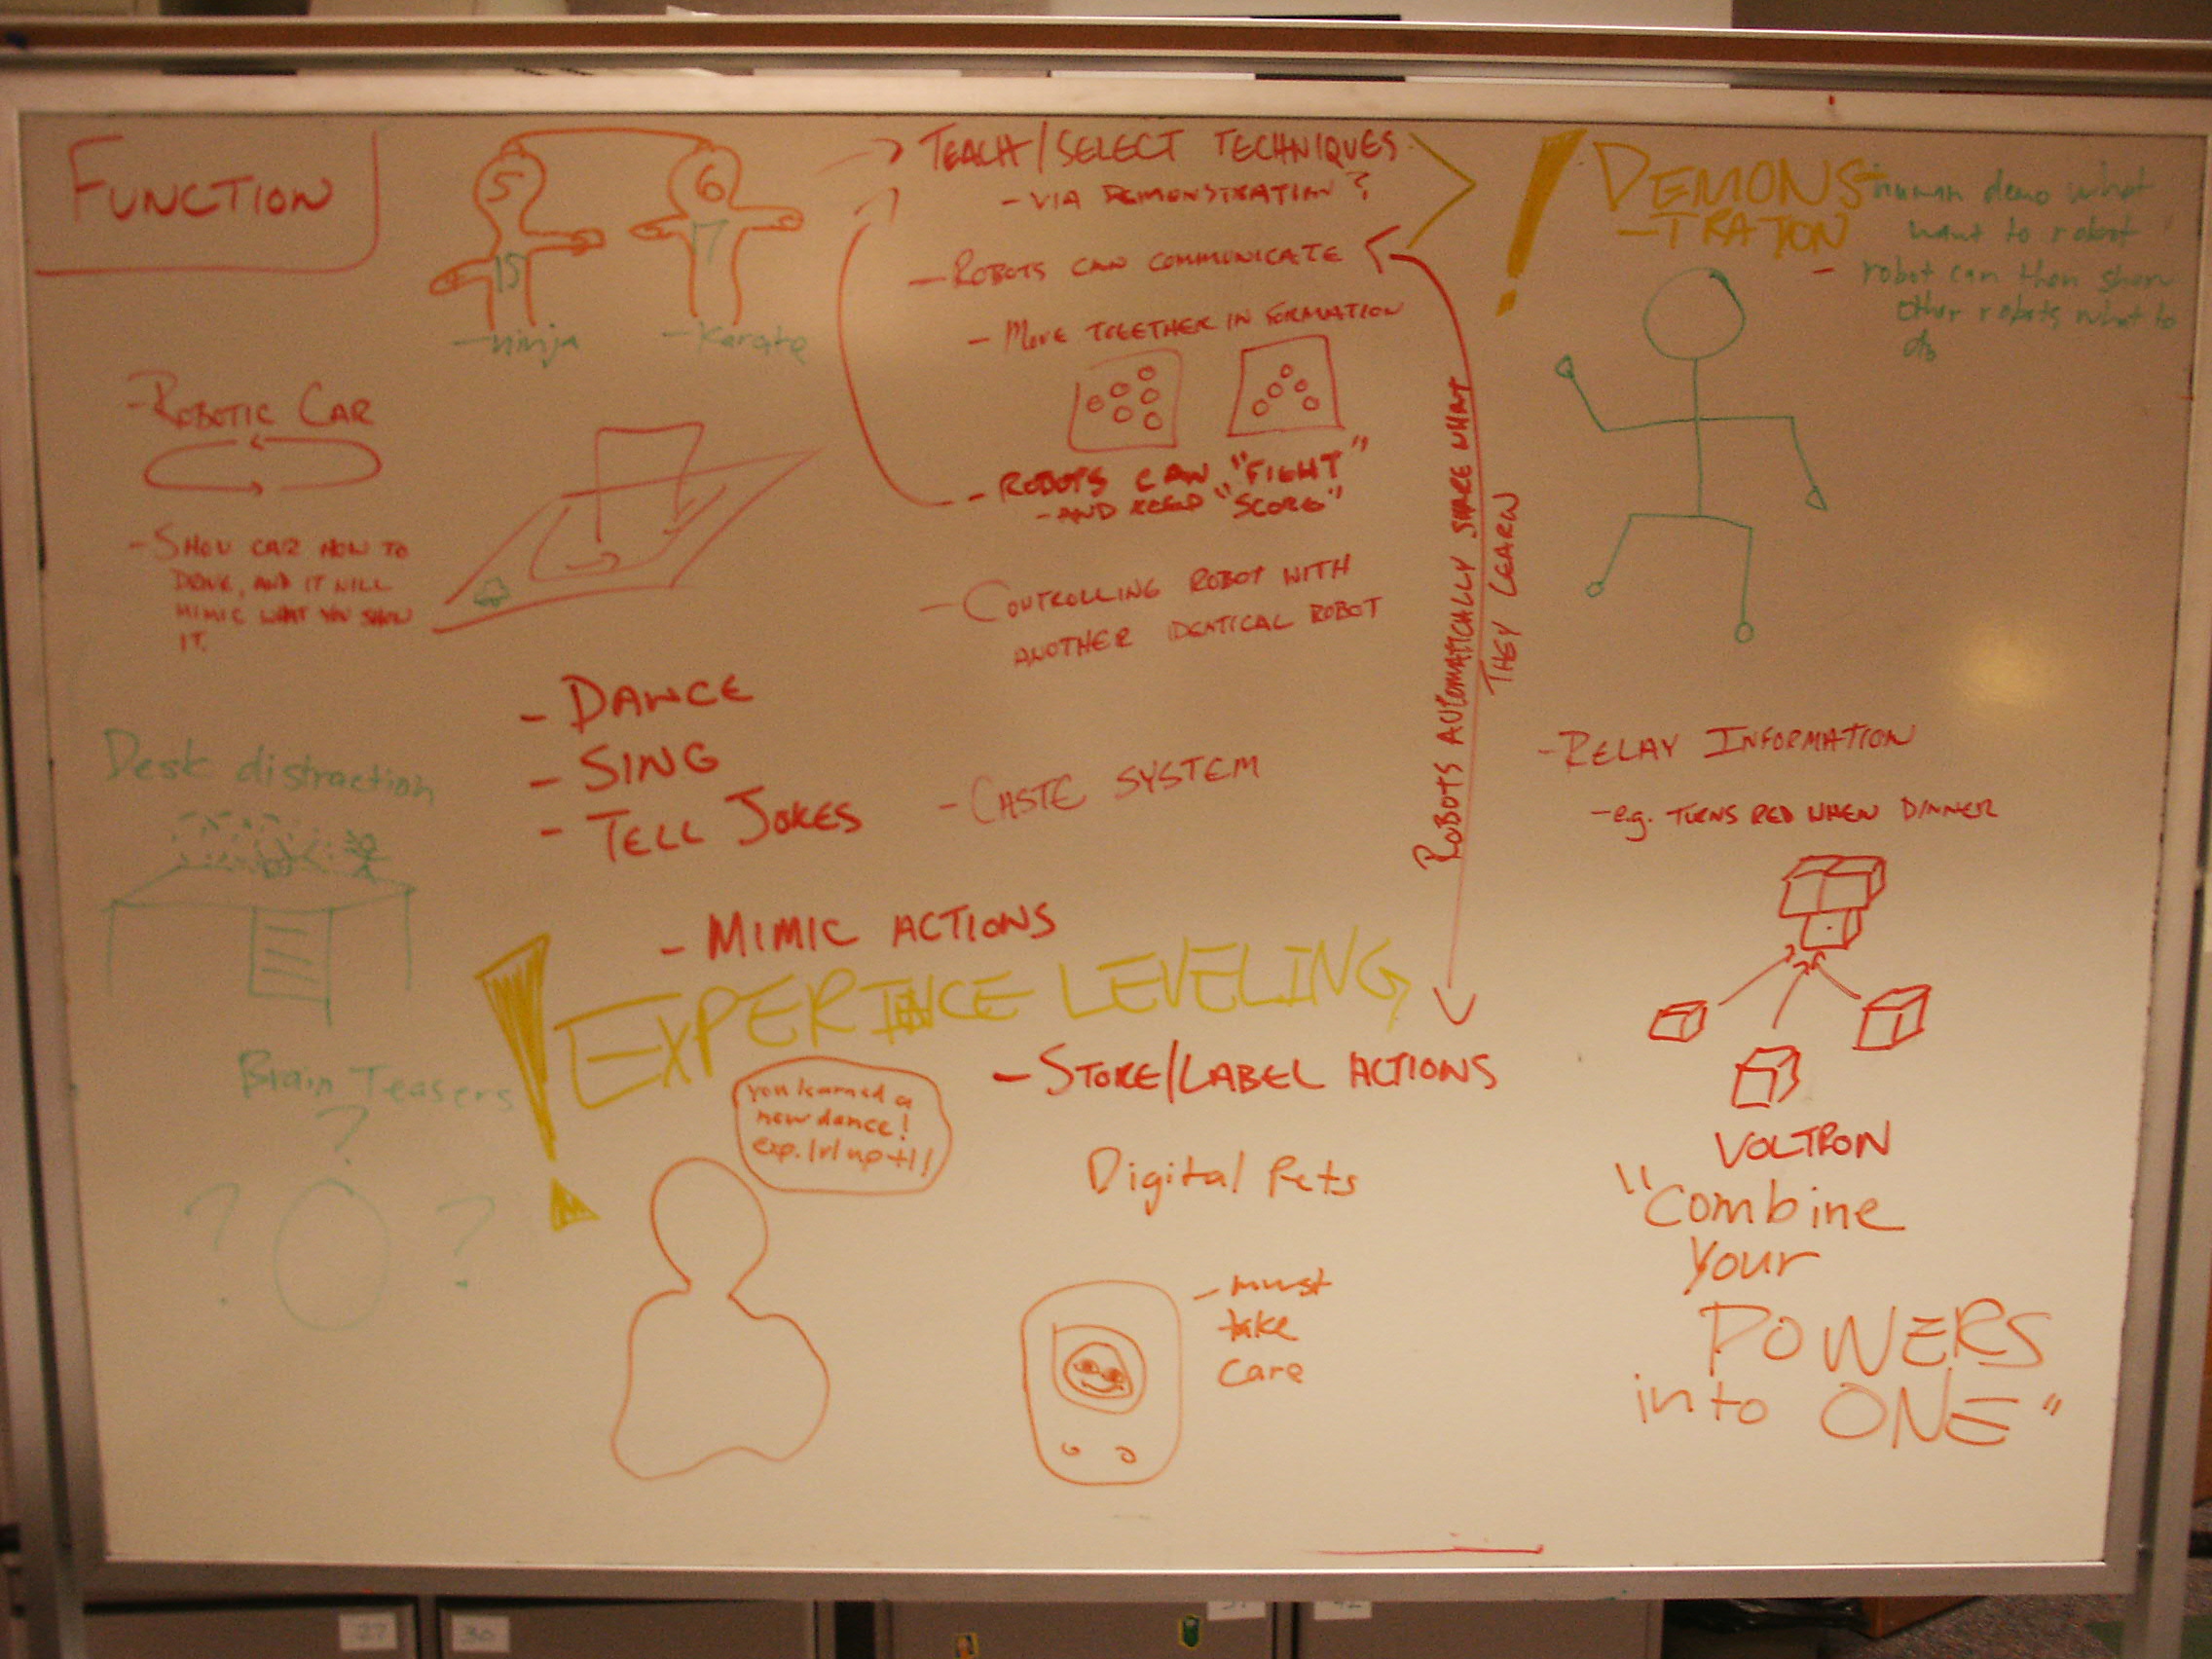 FUNCTION
5
6
15
17
-ninja
-Karate
TEACH/SELECT TECHNIQUES
- VIA DEMONSTRATION?
- ROBOTS CAN COMMUNICATE
- MOVE TOGETHER IN FORMATION
- ROBOTS CAN "FIGHT"
- AND KEEP "SCORE"
- CONTROLLING ROBOT WITH
ANOTHER IDENTICAL ROBOT
! DEMONS
-TRATION
human demo what
want to robot
- robot can then show
other robots what to
do
- ROBOTIC CAR
- SHOW CAR HOW TO
DRIVE, AND IT WILL
MIMIC WHAT YOU SHOW
IT.
ROBOTS AUTOMATICALLY SHARE WHAT
THEY LEARN
- DANCE
- SING
- TELL JOKES
- CASTE SYSTEM
- RELAY INFORMATION
- e.g. TURNS RED WHEN DINNER
Desk distraction
- MIMIC ACTIONS
! EXPERIENCE LEVELING
- STORE/LABEL ACTIONS
Brain Teasers
?
? ?
you learned a
new dance!
exp. lvl up +1!
Digital Pets
- must
take
care
VOLTRON
"Combine
your
POWERS
into ONE"
27
30